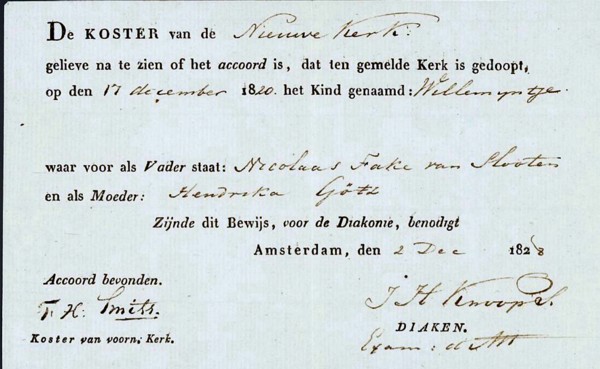 De KOSTER van de Nieuwe Kerk:
gelieve na te zien of het accoord is, dat ten gemelde Kerk is gedoopt,
op den 17 december 1820. het Kind genaamd: Willemyntje.
waar voor als Vader staat: Nicolaas Fake van Slooten
en als Moeder: Hendrika Götz
Zijnde dit Bewijs, voor de Diakonie, benodigt
Amsterdam, den 2 Dec 1828
Accoord bevonden.
F. H. Smits.
J H Knoops.
Koster van voorn. Kerk.
DIAKEN.
Exam: